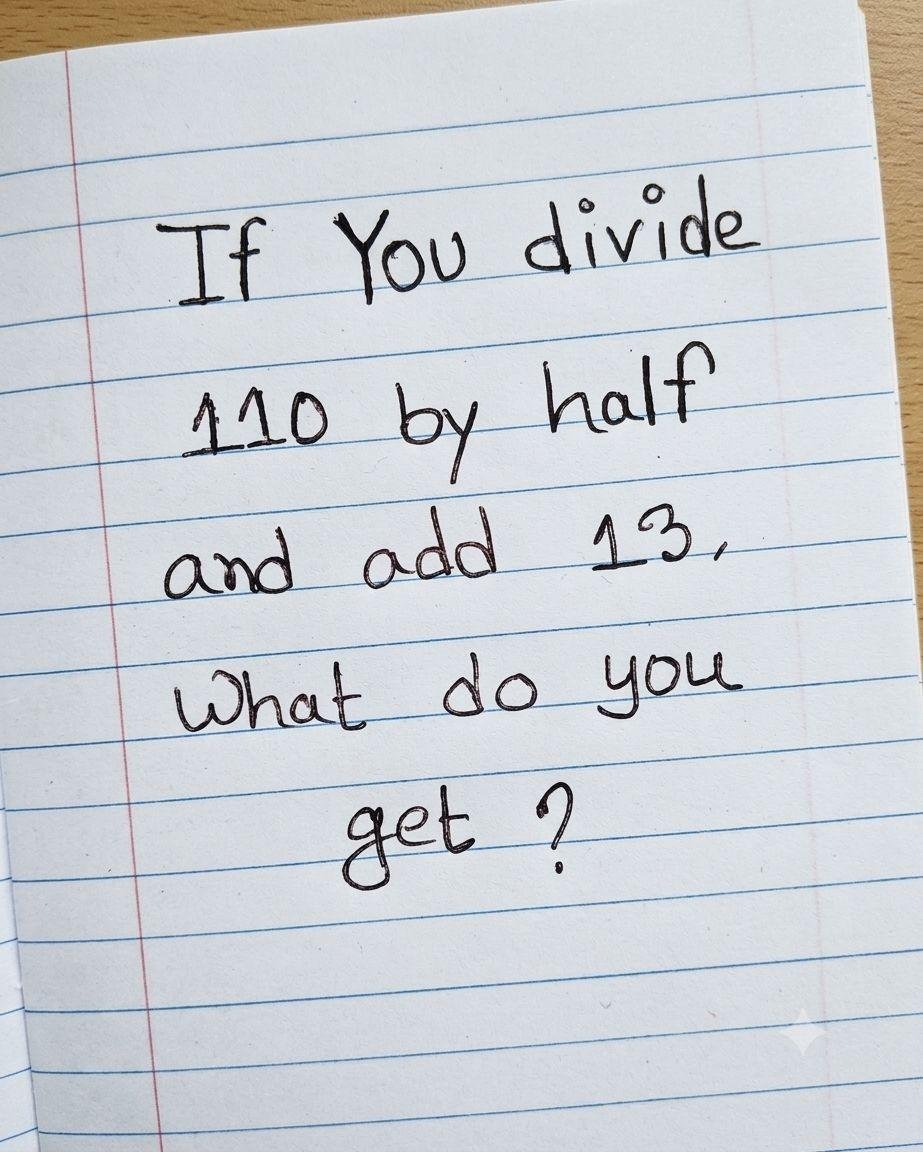 If You divide
110 by half
and add 13,
What do you
get ?